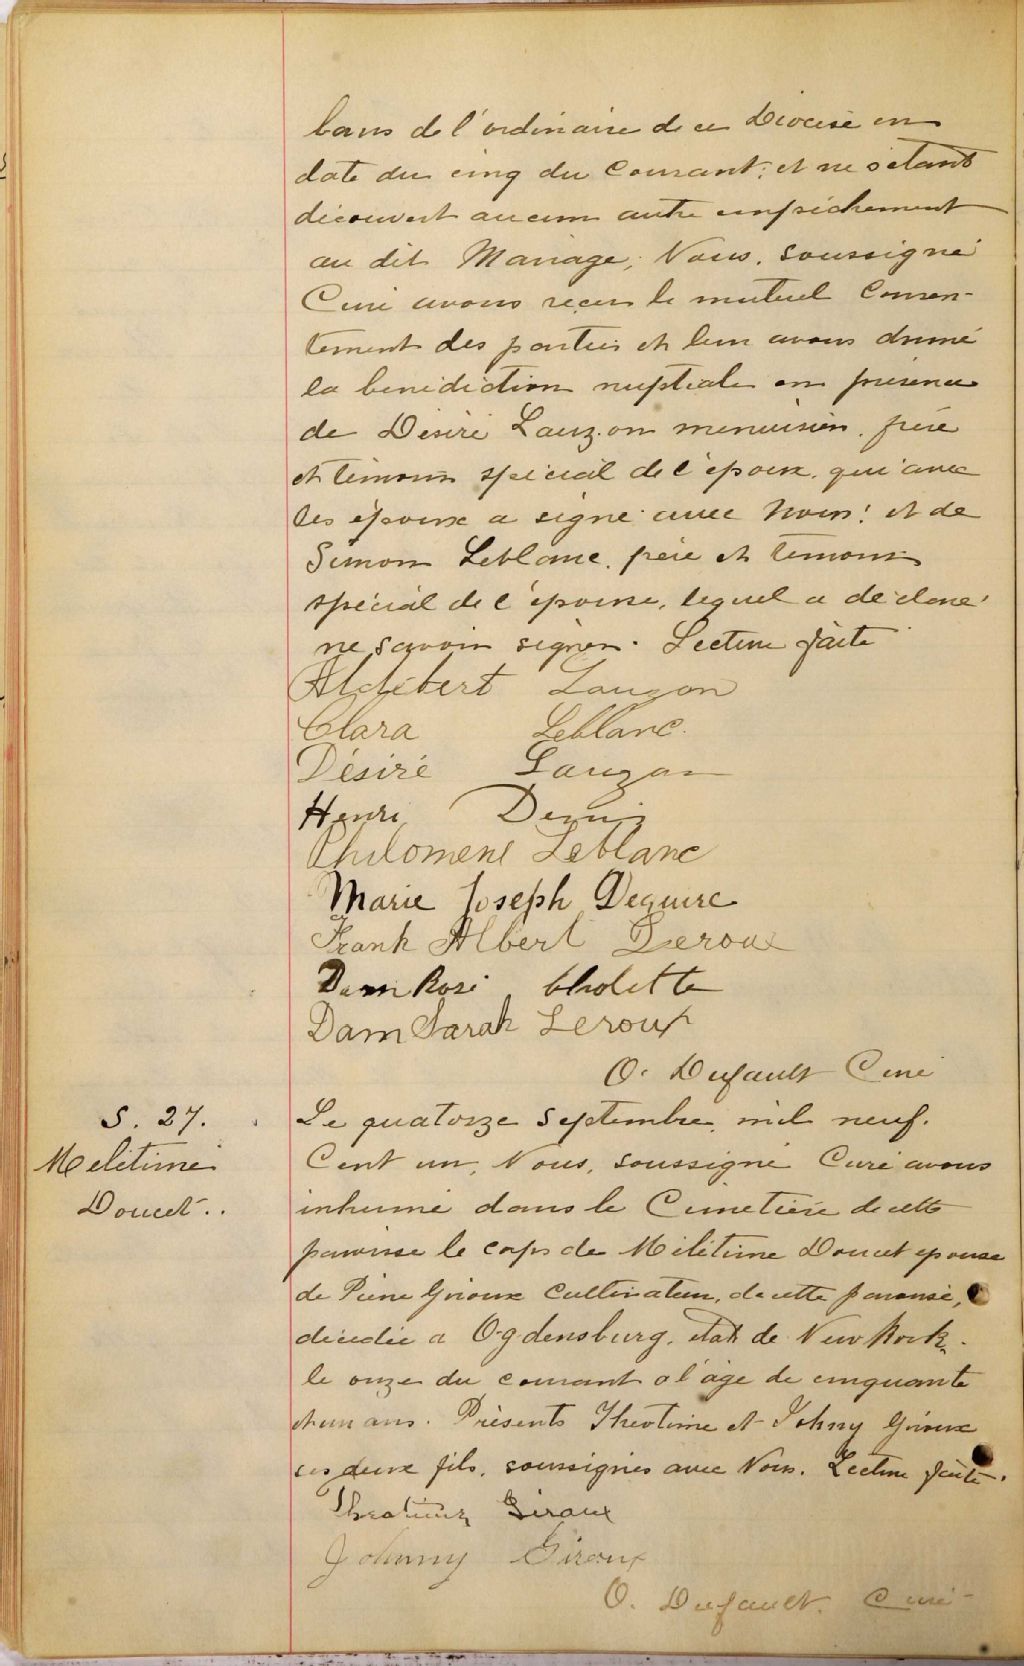 bans de l'ordinaire de ce Diocèse en
date du cinq du Courant; et ne s'étant
découvert aucun autre empêchement
au dit Mariage; Nous, soussigné
Curé avons reçu le mutuel Consen-
tement des parties et leur avons donné
la bénédiction nuptiale en présence
de Désiré Lauzon menuisier, frère
et témoin spécial de l'époux, qui avec
les époux a signé avec Nous; et de
Simon Leblanc, père et témoin
spécial de l'épouse, lequel a déclaré
ne savoir signer. Lecture faite
Aldébert Lauzon
Clara Leblanc.
Désiré Lauzon
Henri Denis
Philomene Leblanc
Marie Joseph Deguire
Frank Albert Leroux
Dam Rosi Cholette
Dam Sarah Leroux
O. Dufault Curé
S. 27.
Melitime
Doucet..
Le quatorze Septembre, mil neuf.
Cent un, Nous, soussigné Curé avons
inhumé dans le Cimetière de cette
paroisse le corps de Mélitime Doucet épouse
de Pierre Giroux Cultivateur, de cette paroisse,
décédée a Ogdensburg, état de New York.
le onze du courant a l'âge de cinquante
et un ans. Présents Théotime et Johny Giroux
ses deux fils, soussignés avec Nous. Lecture faite.
Theotime Giroux
Johnny Giroux
O. Dufault. Curé